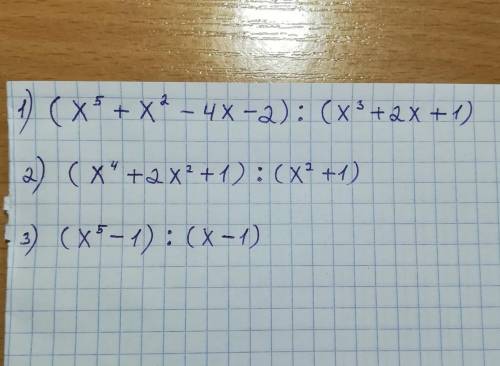 1) (x⁵ + x² - 4x - 2) : (x³ + 2x + 1)
2) (x⁴ + 2x² + 1) : (x² + 1)
3) (x⁵ - 1) : (x - 1)